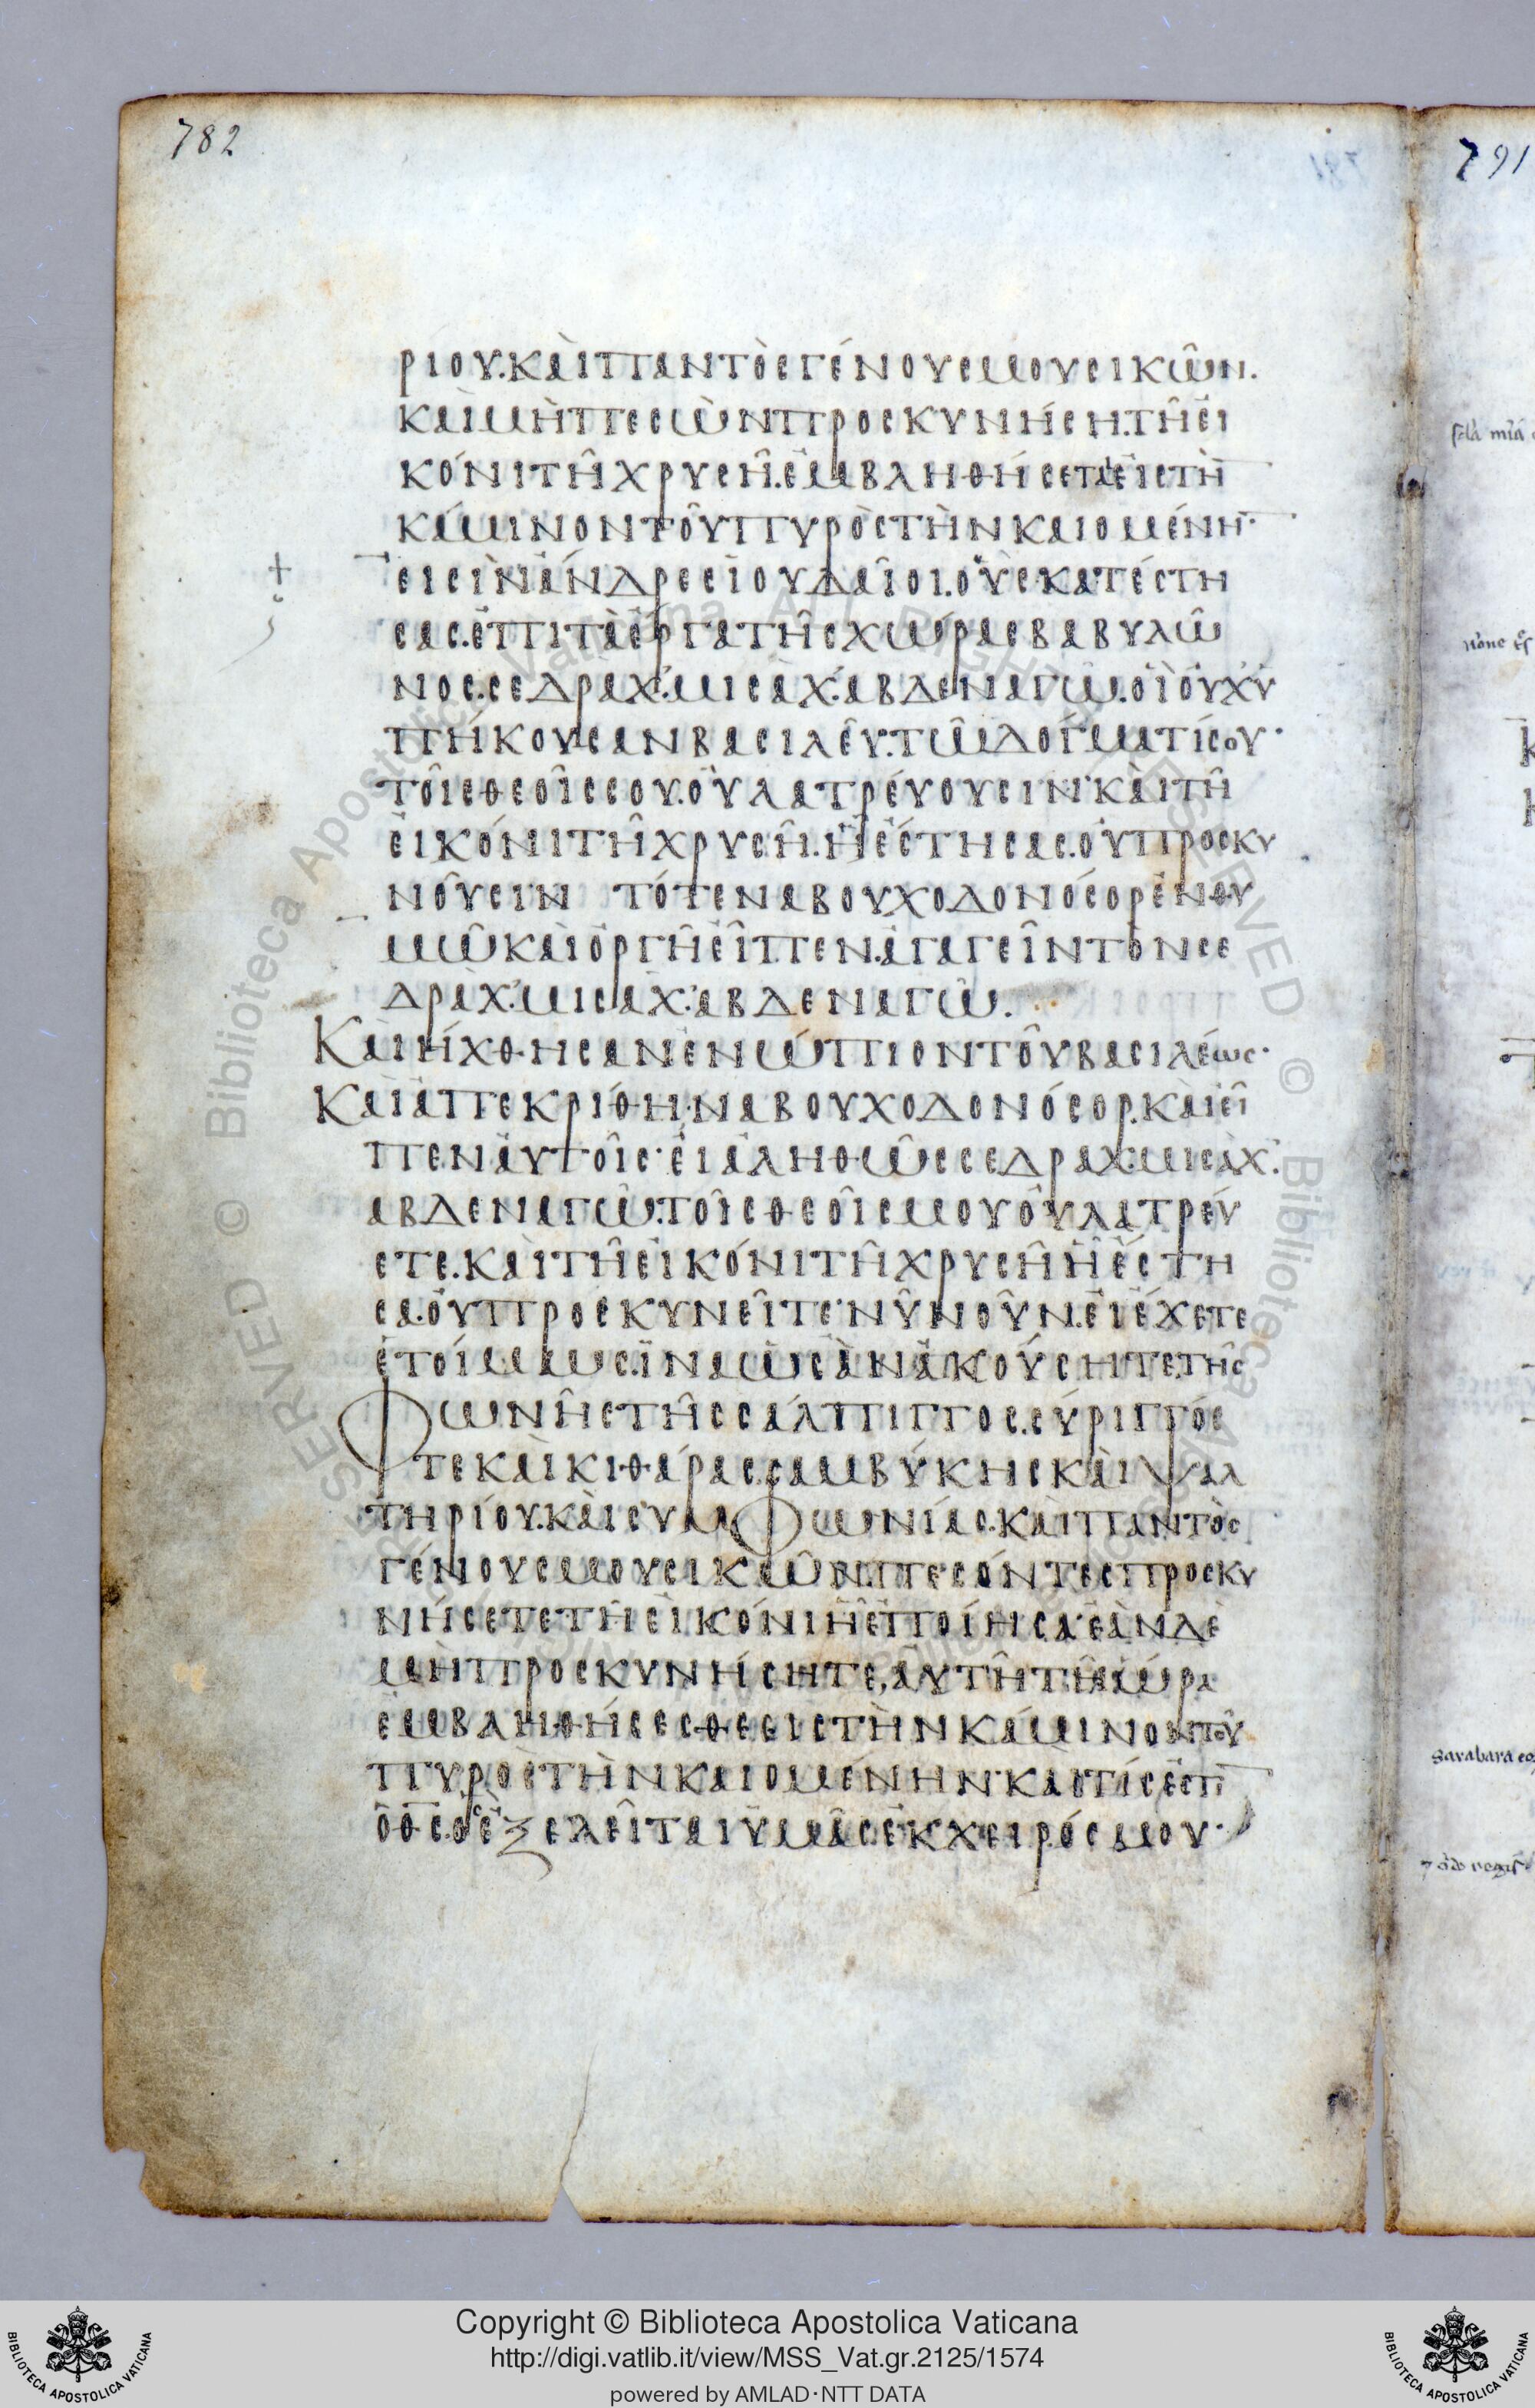 782
791
ριου. καὶ παντὸς γένους μουσικῶν.
καὶ μὴ πεσὼν προσκυνήσῃ. τῆ εἰ
κόνι τῆ χρυσῆ. ἐμβληθήσεται εἰς τὴ̅
κάμινον τοῦ πυρὸς τὴν καιομένη̅·
εἰσὶν ἄνδρες ἰουδαῖοι. οὓς κατέστη
σας. ἐπὶ τὰ ἔργα τῆς χώρας βαβυλῶ
νος. σεδράχ· μισάχ· αβδεναγώ. οἳ οὐχ ὑ
πήκουσαν βασιλεῦ. τῶ δόγματί σου·
τοῖς θεοῖς σου. οὐ λατρεύουσιν· καὶ τῆ
εἰκόνι τῆ χρυσῆ. ἧ ἔστησας. οὐ προσκυ
νοῦσιν τότε ναβουχοδονόσορ ἐν θυ
μῶ καὶ ὀργῆ εἶπεν. ἀγαγεῖν τὸν σε
δράχ· μισάχ· αβδεναγώ.
Καὶ ἤχθησαν ἐνώπιον τοῦ βασιλέως·
Καὶ ἀπεκρίθη ναβουχοδονόσορ. καὶ εἶ
πεν αὐτοῖς· εἰ ἀληθῶς σεδράχ· μισάχ·
αβδεναγώ. τοῖς θεοῖς μου οὐ λατρεύ
ετε. καὶ τῆ εἰκόνι τῆ χρυσῆ ἧ ἔστη
σα. οὐ προσκυνεῖτε· νῦν οὖν. εἰ ἔχετε
ἑτοίμως. ἵνα ὡς ἂν ἀκούσητε. τῆς
Φωνῆς τῆς σάλπιγγος. σύριγγός
τε καὶ κιθάρας. σαμβύκης καὶ ψαλ
τηρίου. καὶ συμφωνίας. καὶ παντὸς
γένους μουσικῶν. πεσόντες προσκυ
νήσετε τῆ εἰκόνι ἧ ἐποίησα· ἐὰν δὲ
μὴ προσκυνήσητε, αὐτῆ τῆ ὥρα
ἐμβληθήσεσθε εἰς τὴν κάμινον τοῦ
πυρὸς τὴν καιομένην· καὶ τίς ἐστι̅
ὁ θ̅ς̅ ὃς ἐξελεῖται ὑμᾶς. ἐκ χειρός μου·
Copyright © Biblioteca Apostolica Vaticana
http://digi.vatlib.it/view/MSS_Vat.gr.2125/1574
powered by AMLAD·NTT DATA